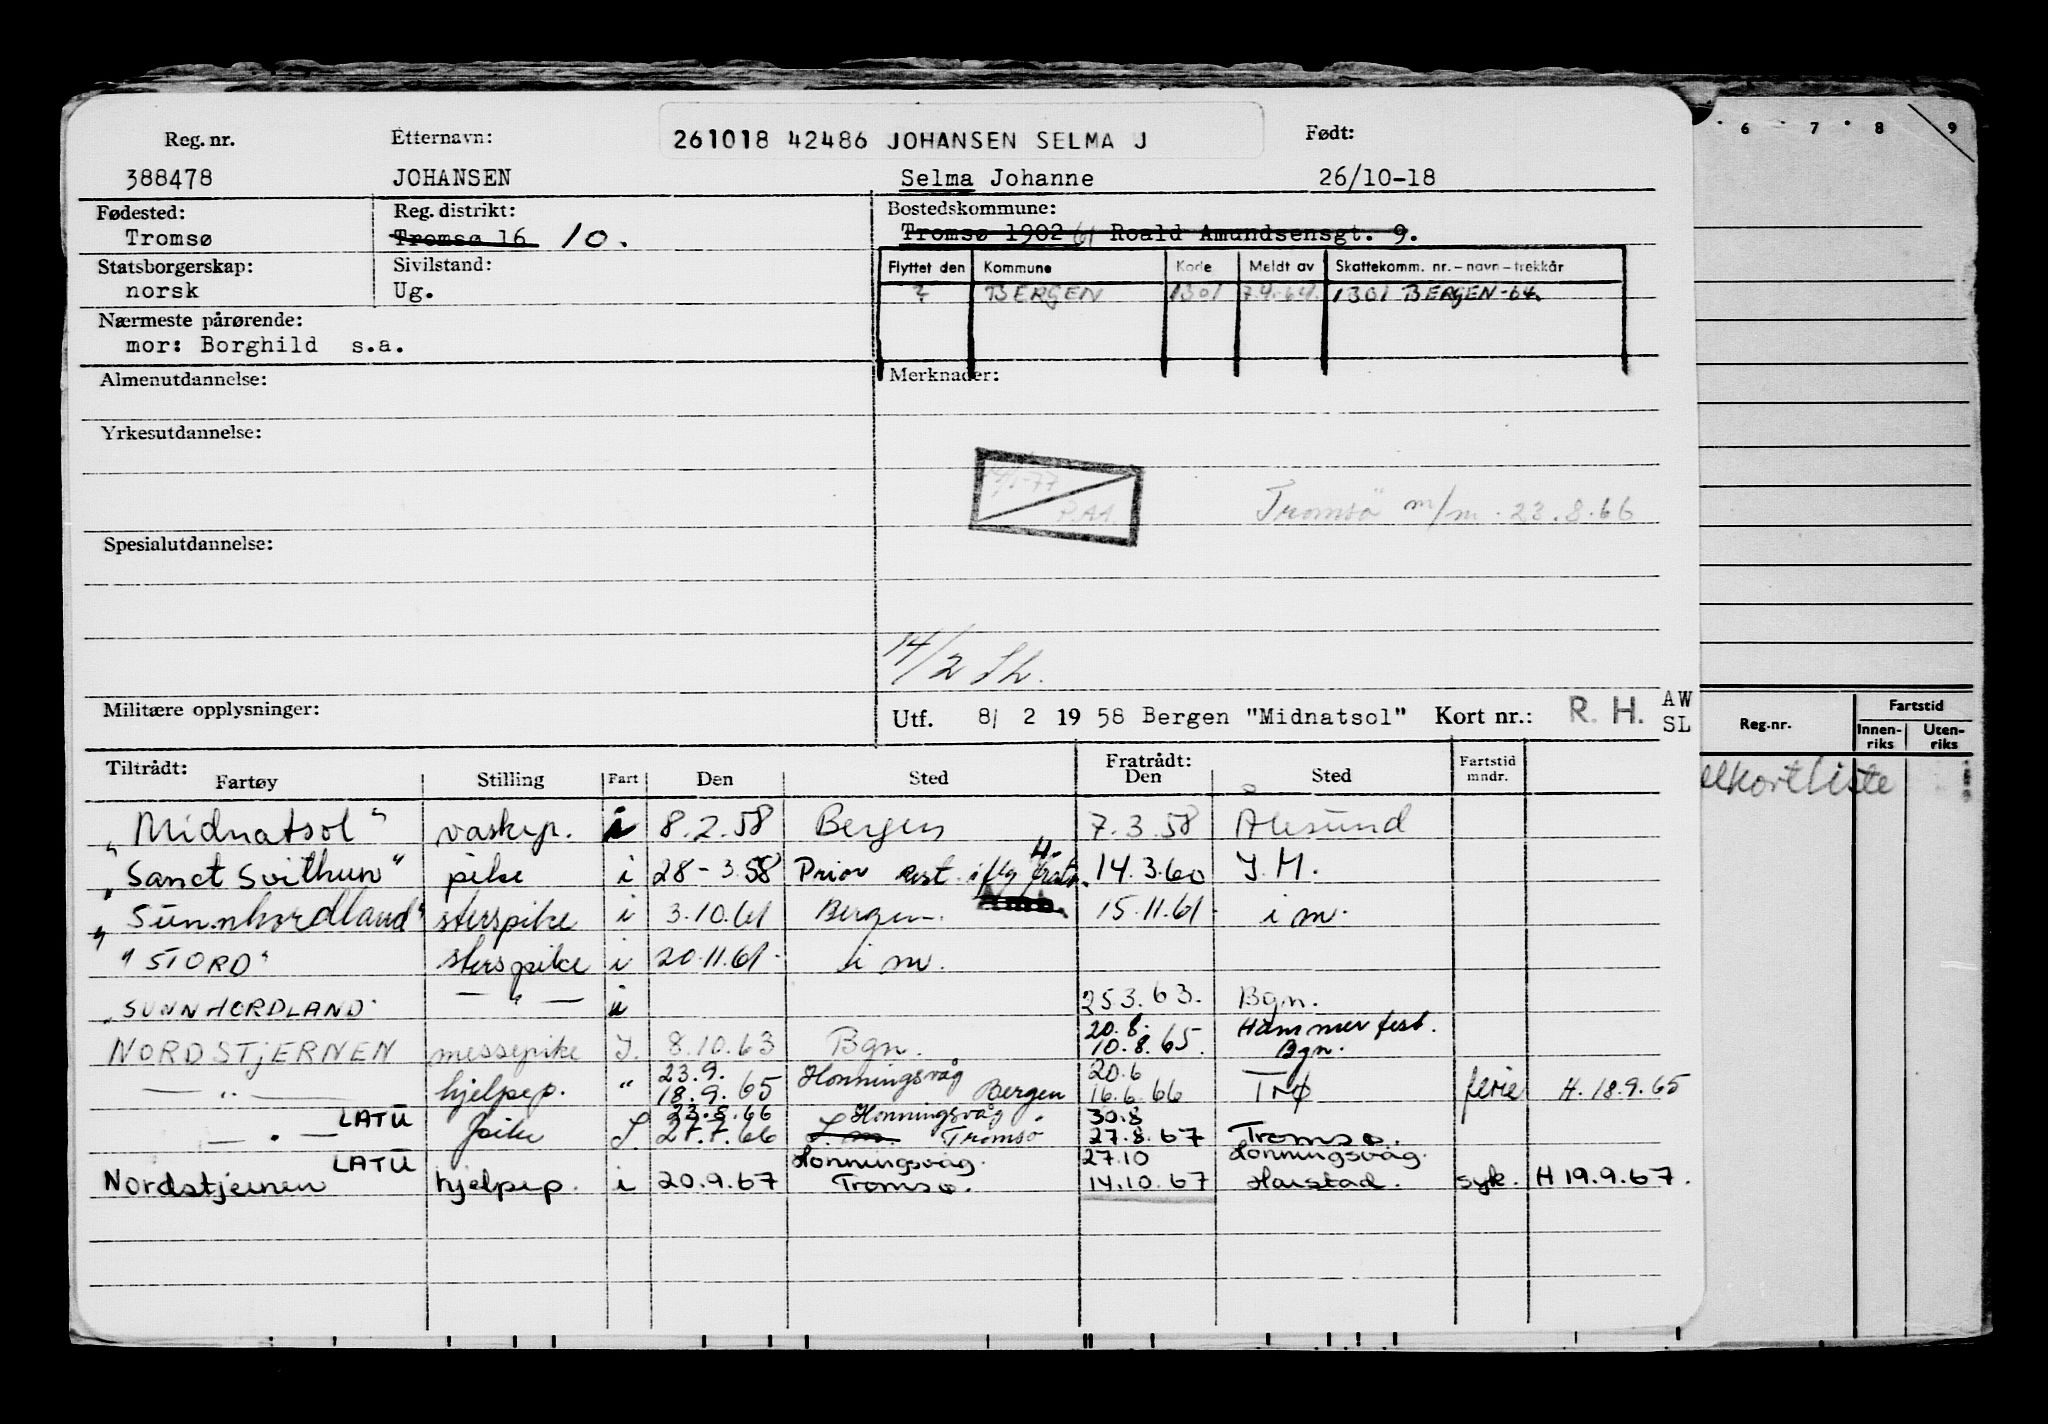 Reg. nr. Etternavn: 261018 42486 JOHANSEN SELMA J Født:
388478 JOHANSEN Selma Johanne 26/10-18
Fødested: Reg. distrikt: Bostedskommune:
Tromsø Tromsø 16 10. Tromsø 1902 61 Roald Amundsensgt. 9.
Statsborgerskap: Sivilstand: Flyttet den Kommune Kode Meldt av Skattekomm. nr. – navn – trekkår
norsk Ug. ? BERGEN 1301 1301 BERGEN-64.
Nærmeste pårørende:
mor: Borghild s.a.
Almenutdannelse: Merknader:
Yrkesutdannelse:
Tromsö m/m. 23.8.66
Spesialutdannelse:
14/2 Sh.
Militære opplysninger: Utf. 8/ 2 19 58 Bergen "Midnatsol" Kort nr.: R. H. AW
SL
Tiltrådt: Fratrådt:
Fartøy Stilling Fart Den Sted Den Sted Fartstid mndr.
"Midnatsol" vaskep. i 8.2.58 Bergen 7.3.58 Ålesund
"Sanct Svithun" pike i 28-3.58 Prior rest. iflg H. fratr. 14.3.60 I.M.
"Sunnhordland" sterspike i 3.10.61 Bergen. 15.11.61. i m.
"STORD" sterspike i 20.11.61. i m.
"SUNNHORDLAND" — " — i 25 3. 63. Bgn.
20.8. Hammerfest.
NORDSTJERNEN messepike I. 8.10.63 Bgn. 10.8.65. Bgn.
23.9. Honningsvåg 20.6
— " — hjelpep. " 18.9.65 Bergen 16.6.66 TRØ ferie H. 18.9.65
LATU 23.8.66 Honningsvåg 30.8
— " — pike I 27.7.66 I.m. Tromsö 27.8.67 Tromsø.
LATU Honningsvåg. 27.10 Honningsvåg.
Nordstjernen hjelpep. i 20.9.67 Tromsø. 14.10.67 Harstad. syk. H 19.9.67.
6 7 8 9
Reg.nr. Fartstid
Innen-riks Uten-riks
elkortliste